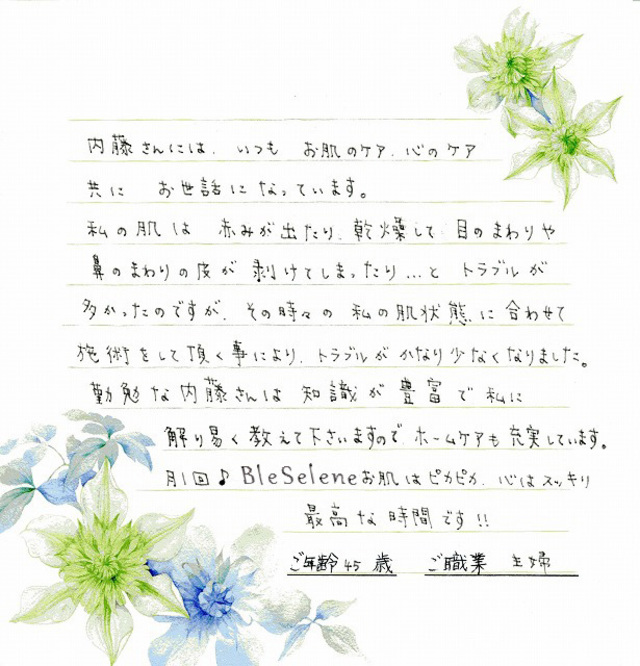 内藤さんには、いつも お肌のケア、心のケア
共に お世話になっています。
私の肌は 赤みが出たり、乾燥して 目のまわりや
鼻のまわりの皮が 剥けてしまったり…と トラブルが
多かったのですが、その時々の 私の肌状態に合わせて
施術をして頂く事により、トラブルが かなり少なくなりました。
勤勉な内藤さんは 知識が 豊富で 私に
解り易く教えて下さいますので ホームケアも充実しています。
月1回♪ BleSelene お肌はピカピカ、心はスッキリ
最高な時間です!!
ご年齢 45 歳 ご職業 主婦